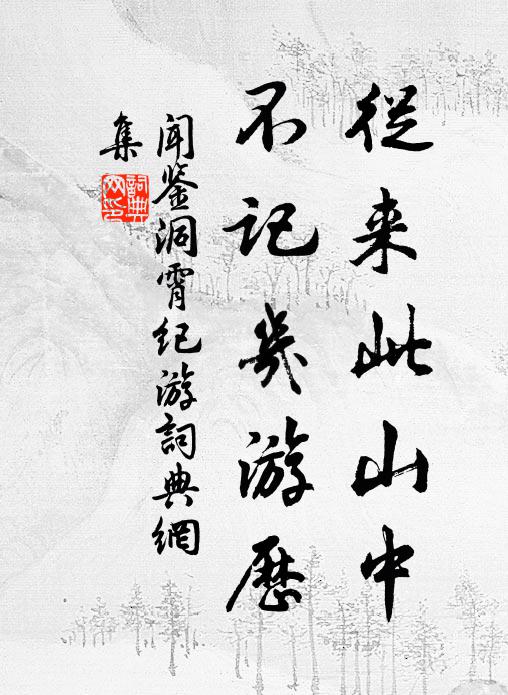 從来此山中
不记幾游歷
闻鉴洞霄纪游詞典網
集
詞典網印